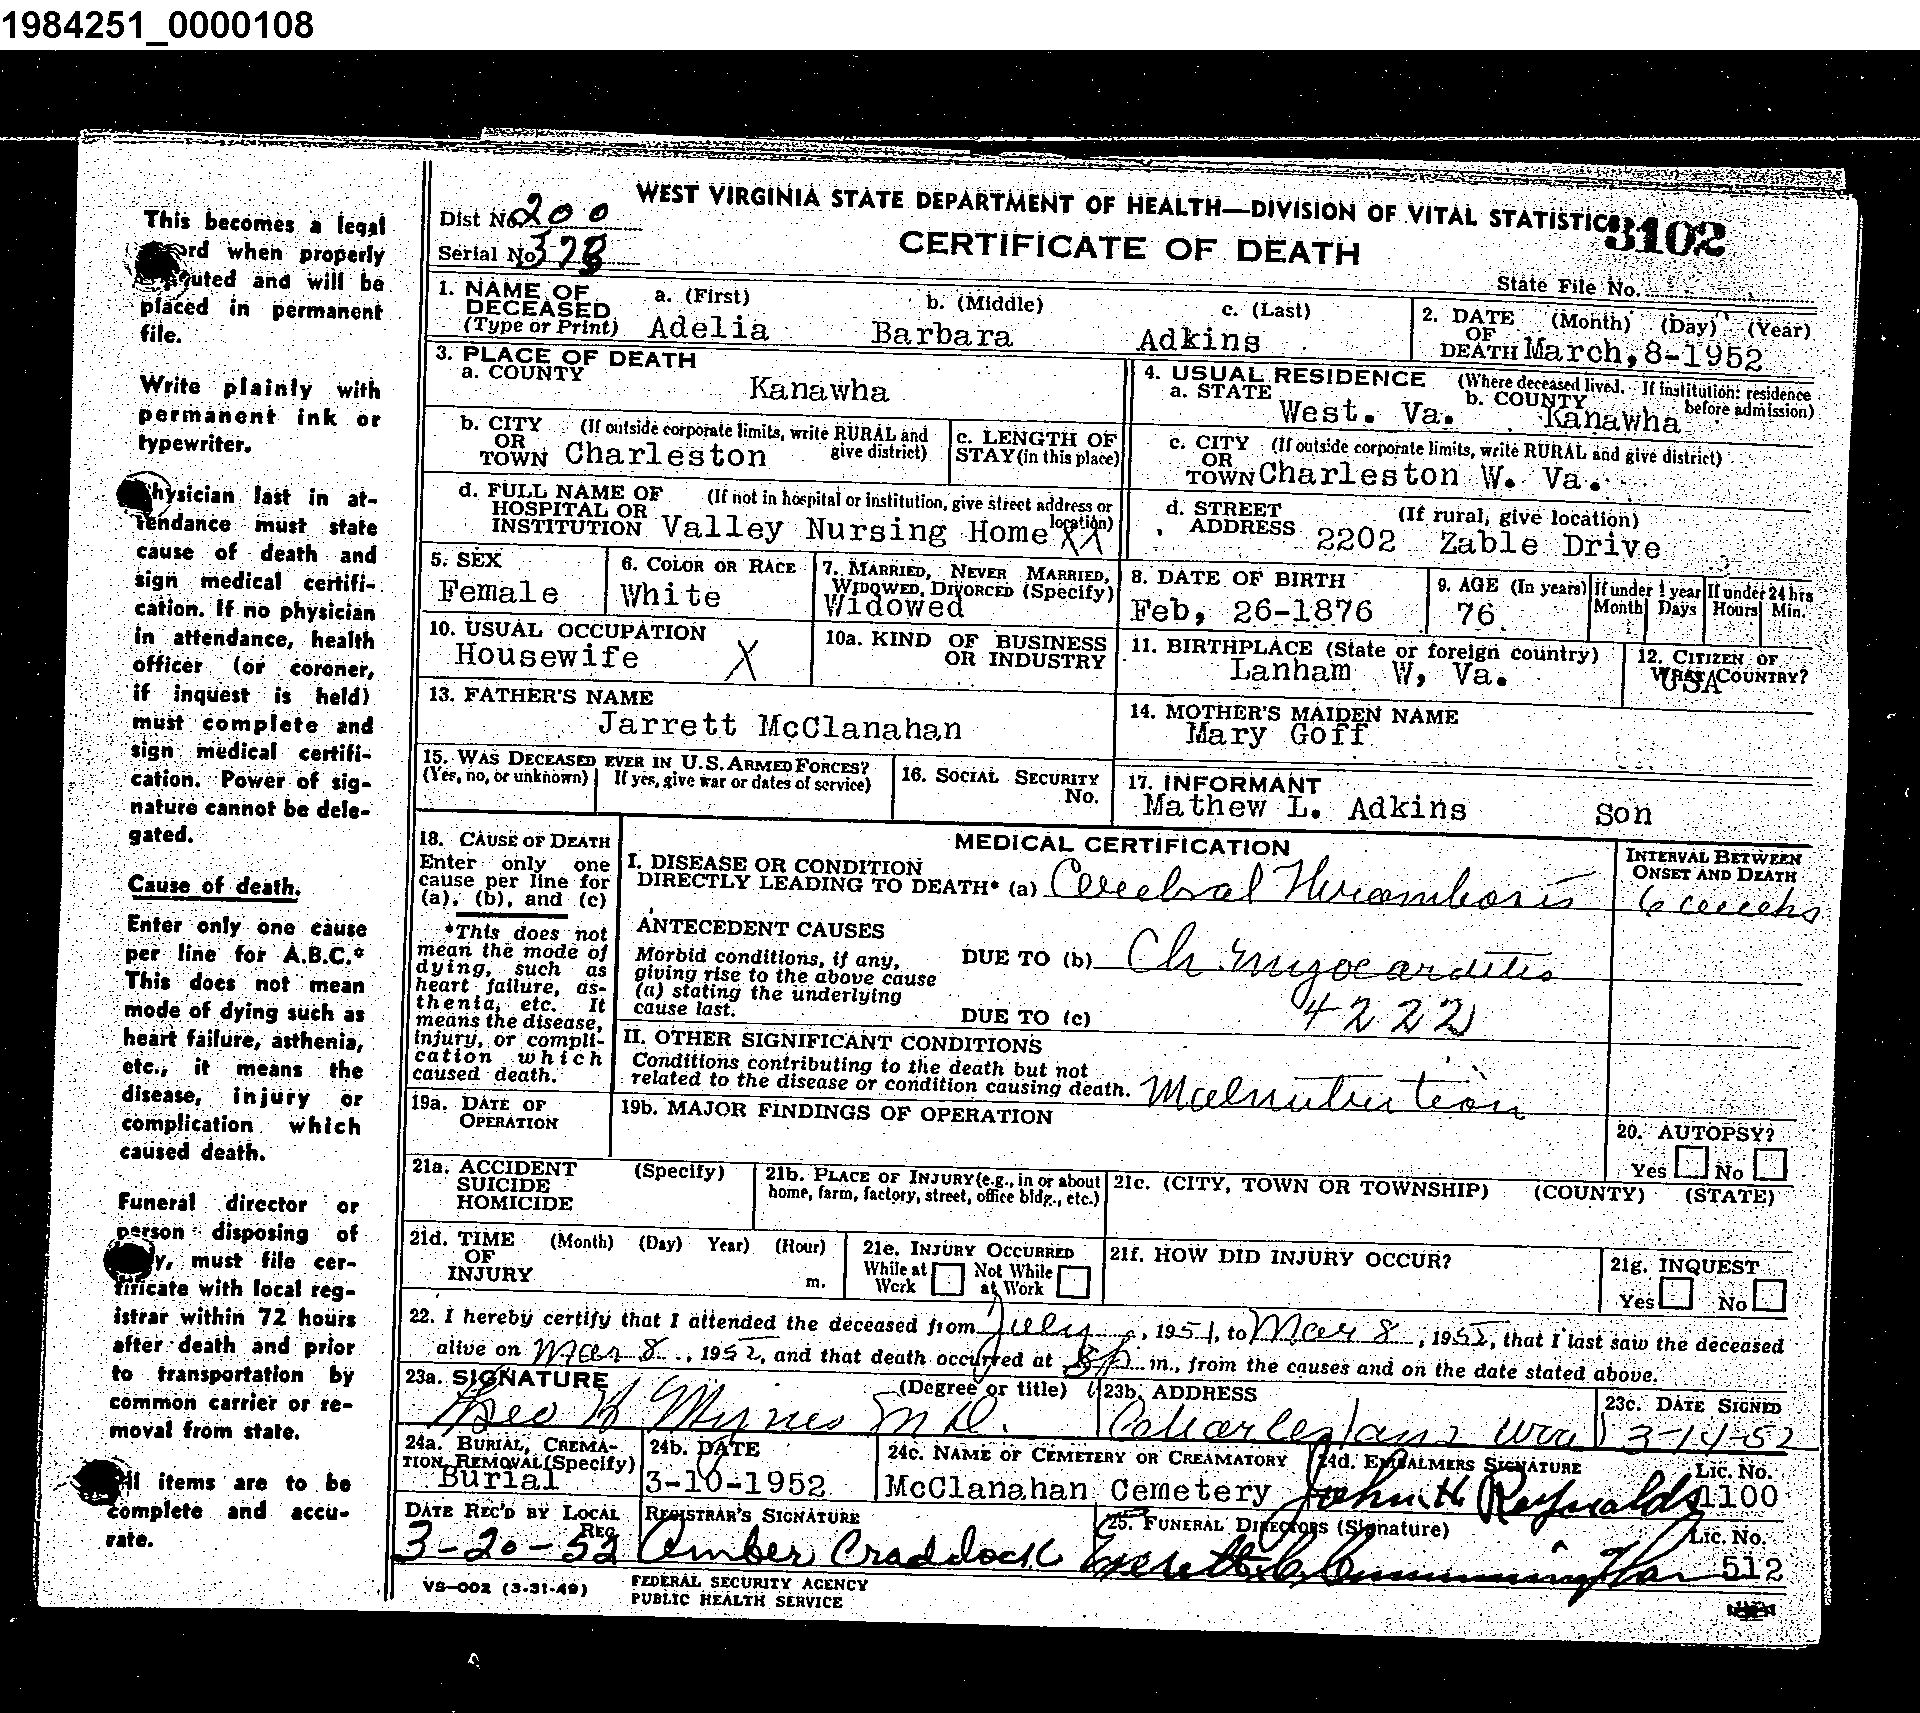 1984251_0000108
WEST VIRGINIA STATE DEPARTMENT OF HEALTH—DIVISION OF VITAL STATISTICS
3102
CERTIFICATE OF DEATH
Dist No. 200
Serial No. 378
State File No.
This becomes a legal
record when properly
executed and will be
placed in permanent
file.
Write plainly with
permanent ink or
typewriter.
Physician last in at-
tendance must state
cause of death and
sign medical certifi-
cation. If no physician
in attendance, health
officer (or coroner,
if inquest is held)
must complete and
sign medical certifi-
cation. Power of sig-
nature cannot be dele-
gated.
Cause of death.
Enter only one cause
per line for A.B.C.*
This does not mean
mode of dying such as
heart failure, asthenia,
etc., it means the
disease, injury or
complication which
caused death.
Funeral director or
person disposing of
body, must file cer-
tificate with local reg-
istrar within 72 hours
after death and prior
to transportation by
common carrier or re-
moval from state.
All items are to be
complete and accu-
rate.
1. NAME OF DECEASED (Type or Print) a. (First) Adelia b. (Middle) Barbara c. (Last) Adkins
2. DATE OF DEATH (Month) (Day) (Year) March, 8-1952
3. PLACE OF DEATH
a. COUNTY Kanawha
4. USUAL RESIDENCE (Where deceased lived. If institution: residence before admission)
a. STATE West. Va. b. COUNTY Kanawha
b. CITY OR TOWN (If outside corporate limits, write RURAL and give district) Charleston
c. LENGTH OF STAY (in this place)
c. CITY OR TOWN (If outside corporate limits, write RURAL and give district) Charleston W. Va.
d. FULL NAME OF HOSPITAL OR INSTITUTION (If not in hospital or institution, give street address or location) Valley Nursing Home XX
d. STREET ADDRESS (If rural, give location) 2202 Zable Drive
5. SEX Female
6. COLOR OR RACE White
7. MARRIED, NEVER MARRIED, WIDOWED, DIVORCED (Specify) Widowed
8. DATE OF BIRTH Feb, 26-1876
9. AGE (In years) 76. If under 1 year Month Days If under 24 hrs Hours Min.
10. USUAL OCCUPATION Housewife X
10a. KIND OF BUSINESS OR INDUSTRY
11. BIRTHPLACE (State or foreign country) Lanham W, Va.
12. CITIZEN OF WHAT COUNTRY? USA
13. FATHER'S NAME Jarrett McClanahan
14. MOTHER'S MAIDEN NAME Mary Goff
15. WAS DECEASED EVER IN U.S. ARMED FORCES?
(Yes, no, or unknown) If yes, give war or dates of service)
16. SOCIAL SECURITY No.
17. INFORMANT Mathew L. Adkins Son
18. CAUSE OF DEATH
Enter only one
cause per line for
(a), (b), and (c)
*This does not
mean the mode of
dying, such as
heart failure, as-
thenia, etc. It
means the disease,
injury, or compli-
cation which
caused death.
MEDICAL CERTIFICATION
INTERVAL BETWEEN ONSET AND DEATH
I. DISEASE OR CONDITION
DIRECTLY LEADING TO DEATH* (a) Cerebral Thrombosis 6 weeks
ANTECEDENT CAUSES
Morbid conditions, if any,
giving rise to the above cause
(a) stating the underlying
cause last.
DUE TO (b) Ch. myocarditis
DUE TO (c) 4222
II. OTHER SIGNIFICANT CONDITIONS
Conditions contributing to the death but not
related to the disease or condition causing death. Malnutrition
19a. DATE OF OPERATION
19b. MAJOR FINDINGS OF OPERATION
20. AUTOPSY?
Yes No
21a. ACCIDENT SUICIDE HOMICIDE (Specify)
21b. PLACE OF INJURY (e.g., in or about home, farm, factory, street, office bldg., etc.)
21c. (CITY, TOWN OR TOWNSHIP) (COUNTY) (STATE)
21d. TIME OF INJURY (Month) (Day) Year) (Hour) m.
21e. INJURY OCCURRED While at Work Not While at Work
21f. HOW DID INJURY OCCUR?
21g. INQUEST Yes No
22. I hereby certify that I attended the deceased from July, 1951, to Mar 8, 1952, that I last saw the deceased
alive on Mar 8, 1952, and that death occurred at 8 P m., from the causes and on the date stated above.
23a. SIGNATURE (Degree or title) Geo H Mynes M D.
23b. ADDRESS Charleston W Va
23c. DATE SIGNED 3-14-52
24a. BURIAL, CREMATION, REMOVAL (Specify) Burial
24b. DATE 3-10-1952
24c. NAME OF CEMETERY OR CREAMATORY McClanahan Cemetery
24d. EMBALMERS SIGNATURE John H Reynolds Lic. No. 1100
DATE REC'D BY LOCAL REG. 3-20-52
REGISTRAR'S SIGNATURE Amber Craddock
25. FUNERAL DIRECTORS (Signature) Everett C Cunningham Lic. No. 512
VS-002 (3-31-49)
FEDERAL SECURITY AGENCY
PUBLIC HEALTH SERVICE